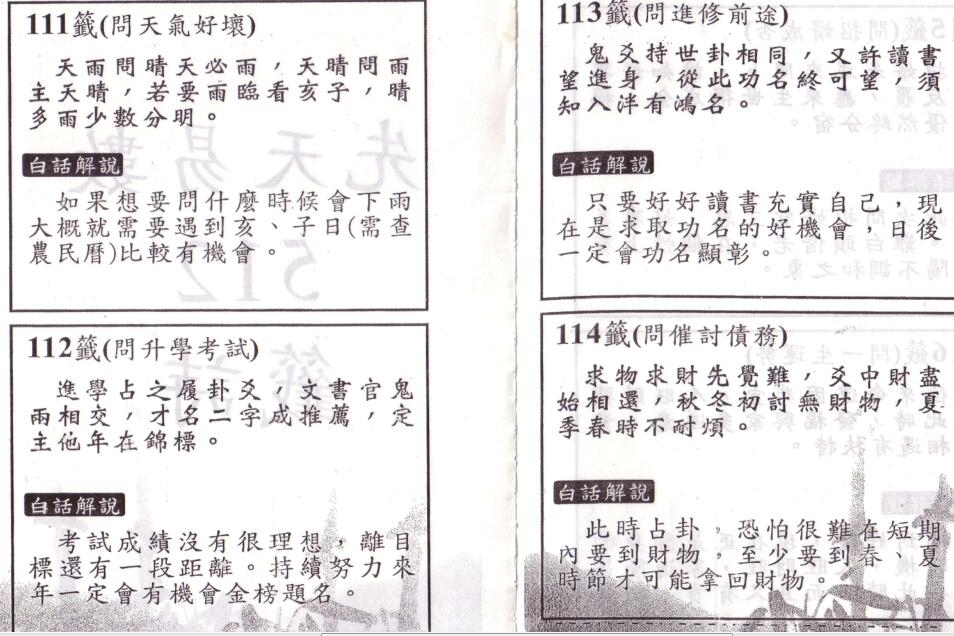 111籤(問天氣好壞)
天雨問晴天必雨，天晴問雨
主天晴，若要雨臨看亥子，晴
多雨少數分明。
白話解說
如果想要問什麼時候會下雨
大概就需要遇到亥、子日(需查
農民曆)比較有機會。
112籤(問升學考試)
進學占之履卦爻，文書官鬼
兩相交，才名二字成推薦，定
主他年在錦標。
白話解說
考試成績沒有很理想，離目
標還有一段距離。持續努力來
年一定會有機會金榜題名。
113籤(問進修前途)
鬼爻持世卦相同，又許讀書
望進身，從此功名終可望，須
知入泮有鴻名。
白話解說
只要好好讀書充實自己，現
在是求取功名的好機會，日後
一定會功名顯彰。
114籤(問催討債務)
求物求財先覺難，爻中財盡
始相還，秋冬初討無財物，夏
季春時不耐煩。
白話解說
此時占卦，恐怕很難在短期
內要到財物，至少要到春、夏
時節才可能拿回財物。